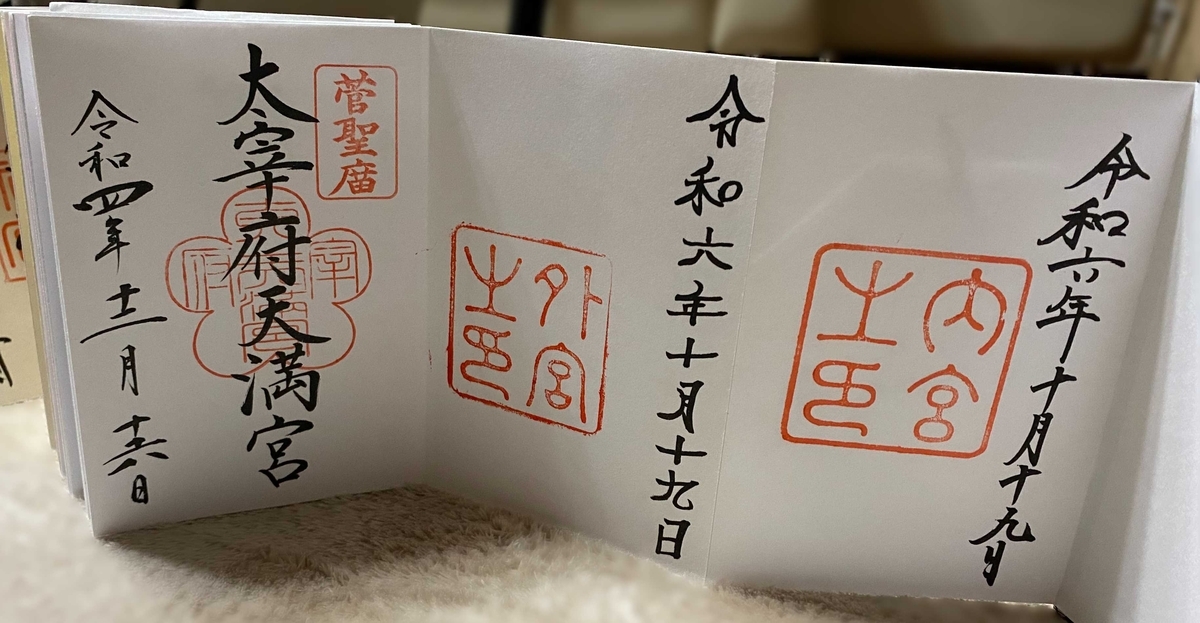 令和六年十月十九日
内宮
之印
令和六年十月十九日
外宮
之印
菅聖庿
太宰府天満宮
令和四年十二月十六日